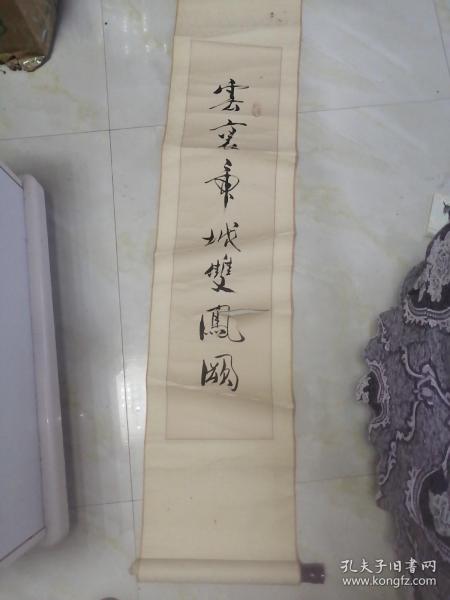 雲裏帝城雙鳳闕
孔夫子旧书网
www.kongfz.com